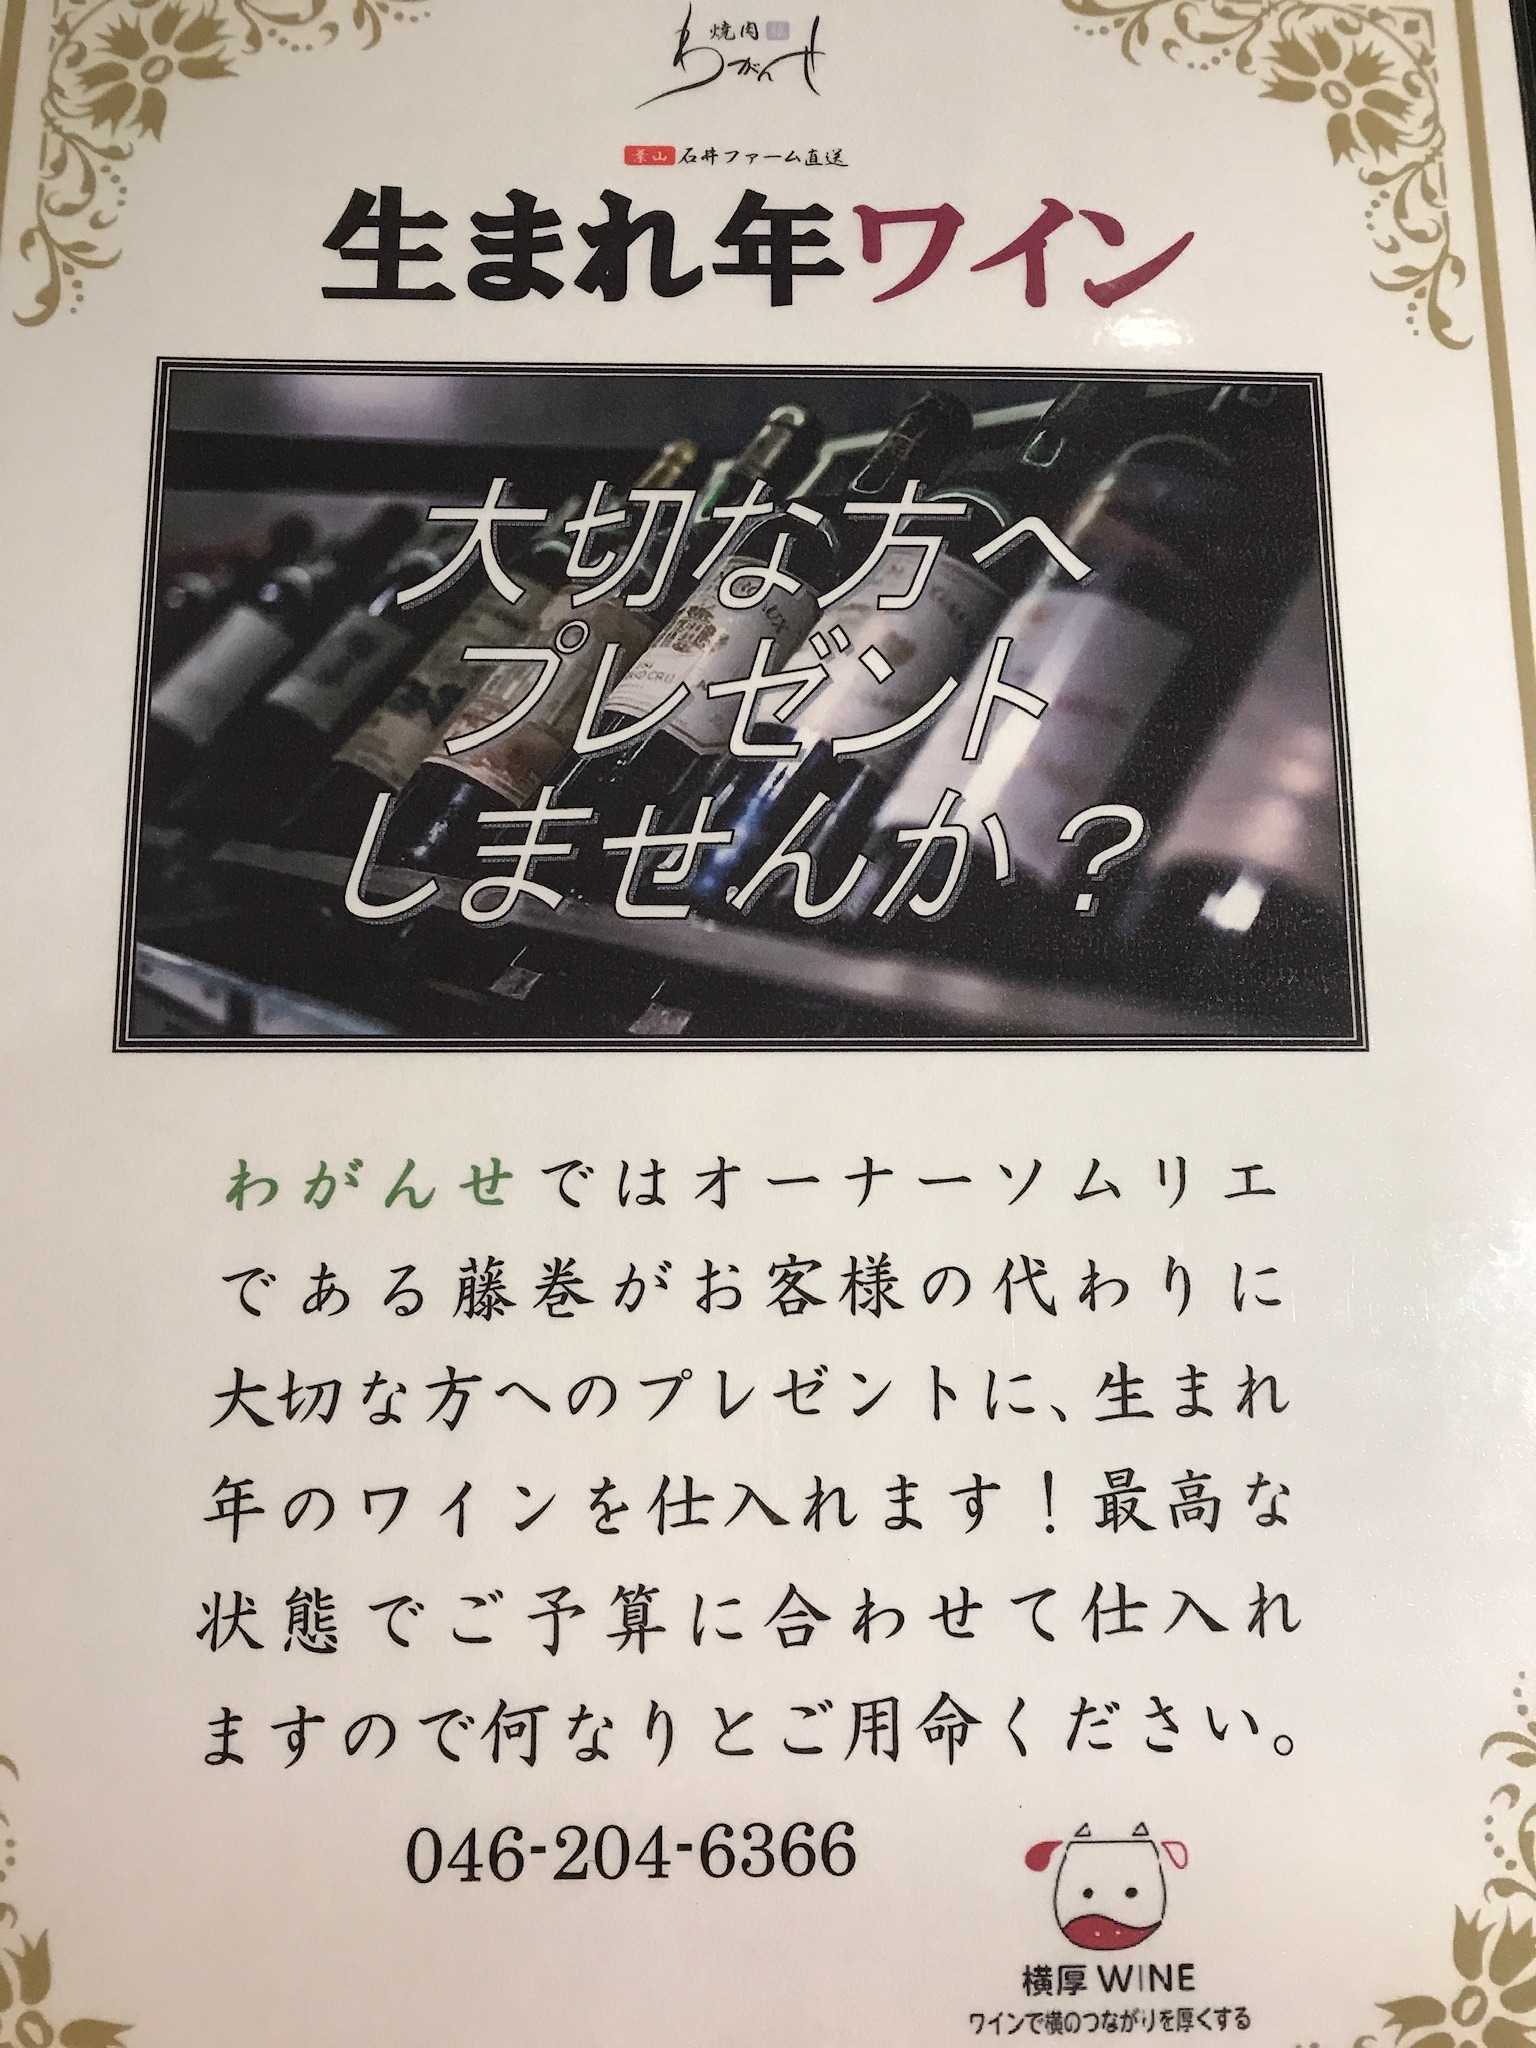 焼肉
わがんせ
葉山 石井ファーム直送
生まれ年ワイン
大切な方へ
プレゼント
しませんか？
わがんせではオーナーソムリエ
である藤巻がお客様の代わりに
大切な方へのプレゼントに、生まれ
年のワインを仕入れます！最高な
状態でご予算に合わせて仕入れ
ますので何なりとご用命ください。
046-204-6366
横厚 WINE
ワインで横のつながりを厚くする